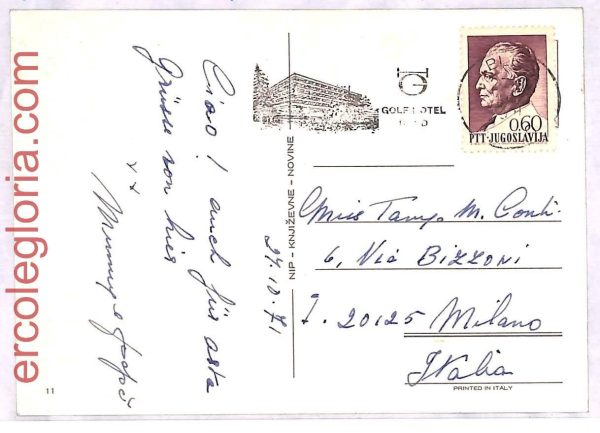 ercolegloria.com
Ciao! auch für
Grüsse von hier
24.10.71
NIP - KNJIŽEVNE - NOVINE
GOLF HOTEL
0.60
PTT-JUGOSLAVIJA
Miss M. Conti
6, Via Bizzoni
I. 20125 Milano
Italia
11
PRINTED IN ITALY